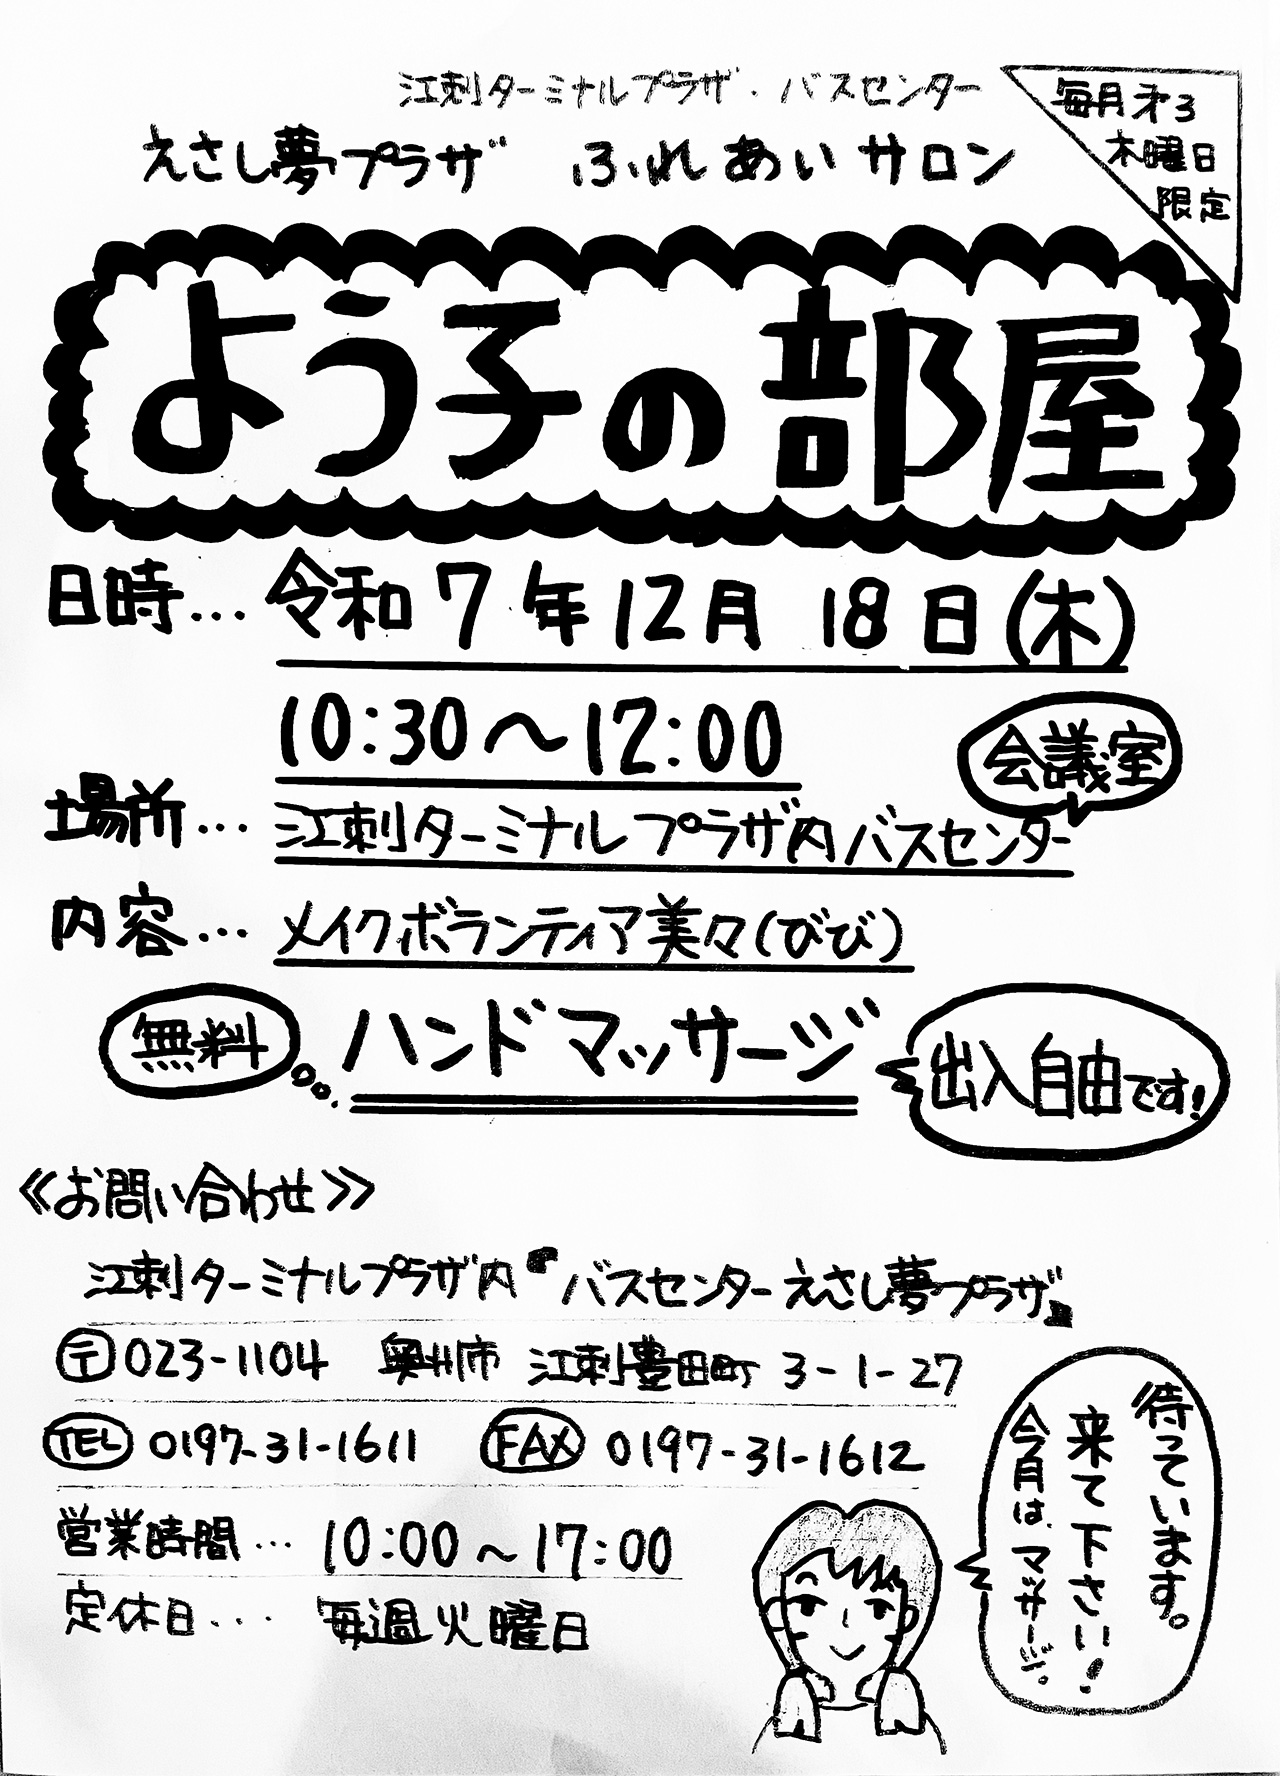 江刺ターミナルプラザ・バスセンター
えさし夢プラザ ふれあいサロン
毎月才3
木曜日
限定
よう子の部屋
日時… 令和7年12月18日(木)
10:30〜12:00
会議室
場所… 江刺ターミナルプラザ内バスセンター
内容… メイクボランティア美々(びび)
無料
ハンドマッサージ
出入自由です!
≪お問い合わせ≫
江刺ターミナルプラザ内『バスセンターえさし夢プラザ』
〒023-1104 奥州市 江刺豊田町 3-1-27
TEL 0197-31-1611 FAX 0197-31-1612
営業時間… 10:00〜17:00
定休日… 毎週火曜日
待っています。
来て下さい!
今月は、マッサージ。